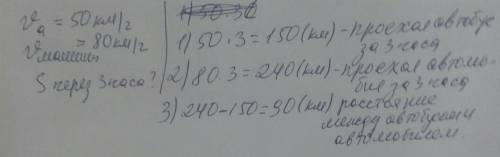 υа = 50 км/ч
υмашин = 80 км/ч
S через 3 часа?
1) 50·3
1) 50·3=150(км)-проехал автобус
за 3 часа
2) 80·3=240(км)-проехал автомо-
биль за 3 часа
3) 240-150=90(км) расстояние
между автобусом и
автомобилем.